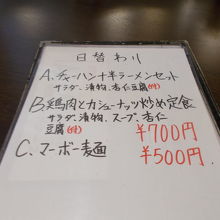 日替わり
A、チャーハン+半ラーメンセット
サラダ、漬物、杏仁豆腐(付)
B、鶏肉とカシューナッツ炒め定食
サラダ、漬物、スープ、杏仁
豆腐(付) ¥700円
C、マーボー麺 ¥500円